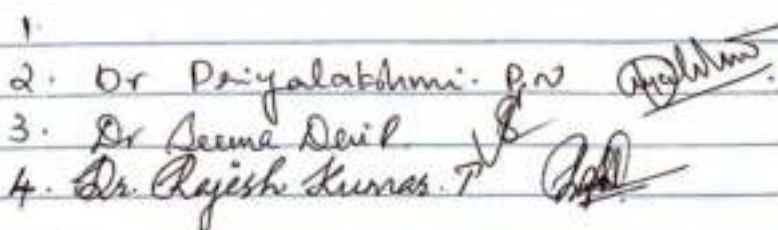 1.
2. Dr Priyalakshmi. P.N
3. Dr Seema Devi P.
4. Dr. Rajesh Kumar. T